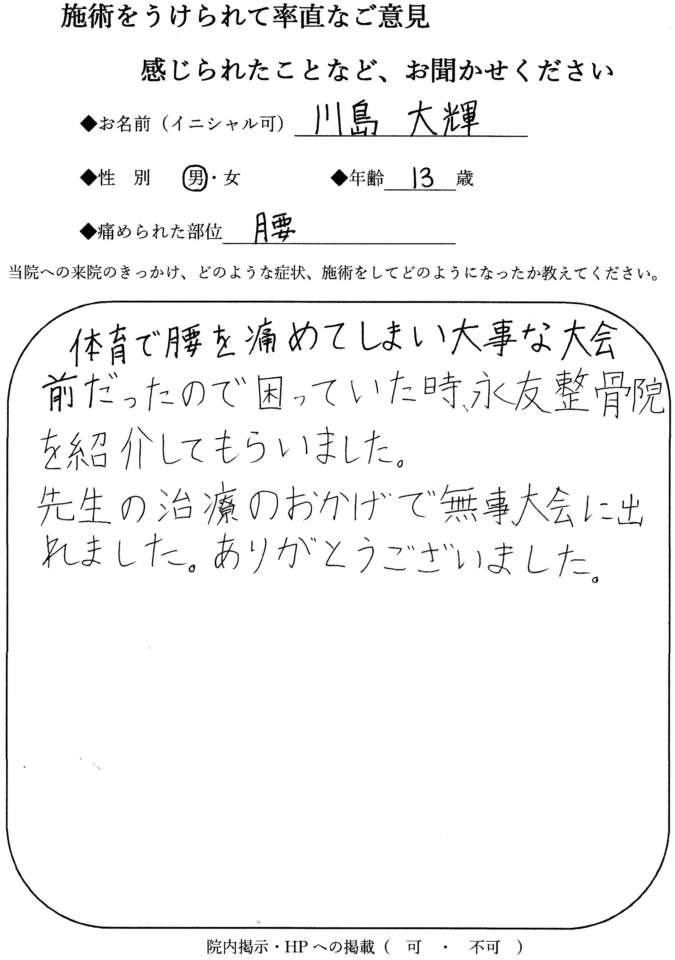 施術をうけられて率直なご意見
感じられたことなど、お聞かせください
◆お名前（イニシャル可） 川島 大輝
◆性 別 男・女 ◆年齢 13 歳
◆痛められた部位 腰
当院への来院のきっかけ、どのような症状、施術をしてどのようになったか教えてください。
体育で腰を痛めてしまい大事な大会
前だったので困っていた時、永友整骨院
を紹介してもらいました。
先生の治療のおかげで無事大会に出
れました。ありがとうございました。
院内掲示・HPへの掲載（ 可 ・ 不可 ）